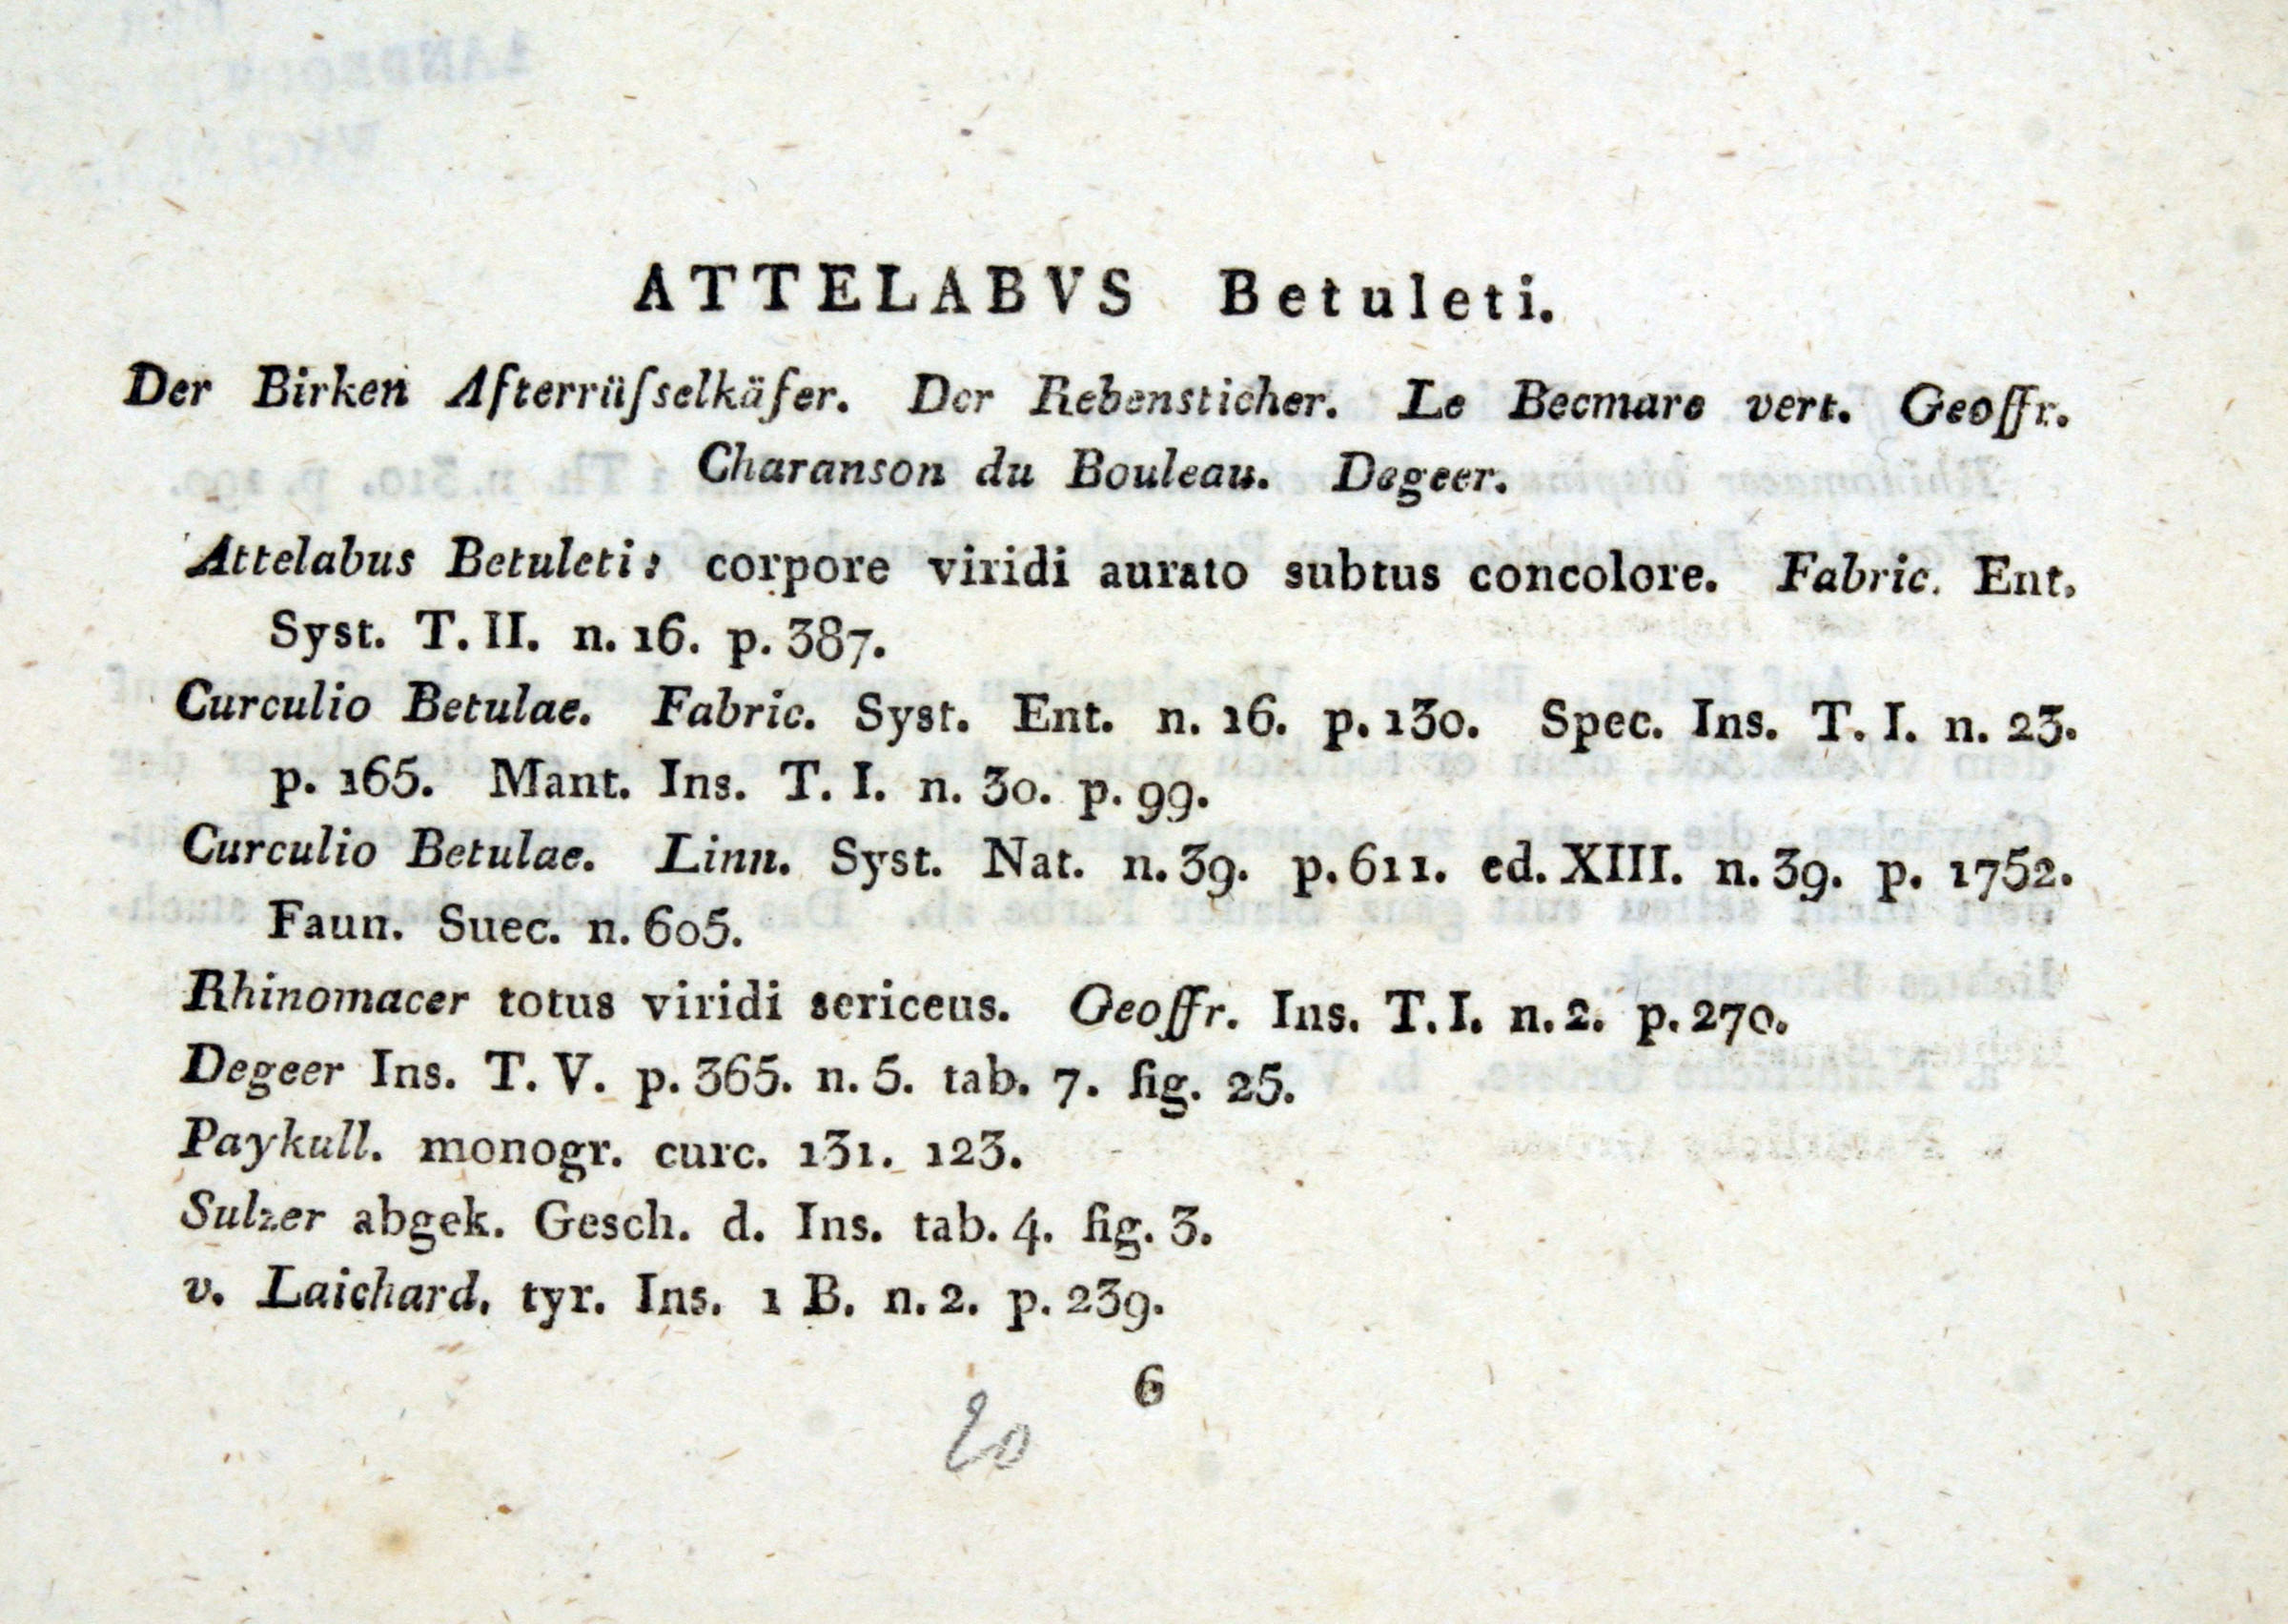 ATTELABVS Betuleti.
Der Birken Afterrüſselkäfer. Der Rebensticher. Le Becmare vert. Geoffr.
Charanson du Bouleau. Degeer.
Attelabus Betuleti: corpore viridi aurato subtus concolore. Fabric. Ent.
Syst. T. II. n. 16. p. 387.
Curculio Betulae. Fabric. Syst. Ent. n. 16. p. 130. Spec. Ins. T. I. n. 23.
p. 165. Mant. Ins. T. I. n. 30. p. 99.
Curculio Betulae. Linn. Syst. Nat. n. 39. p. 611. ed. XIII. n. 39. p. 1752.
Faun. Suec. n. 605.
Rhinomacer totus viridi sericeus. Geoffr. Ins. T. I. n. 2. p. 270.
Degeer Ins. T. V. p. 365. n. 5. tab. 7. fig. 25.
Paykull. monogr. curc. 131. 123.
Sulzer abgek. Gesch. d. Ins. tab. 4. fig. 3.
v. Laichard. tyr. Ins. 1 B. n. 2. p. 239.
6
20